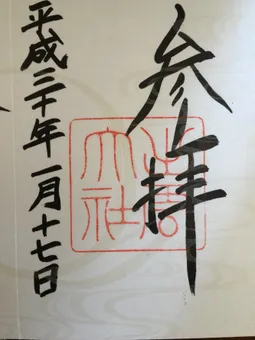 参拝
出雲大社
平成三十年一月十七日